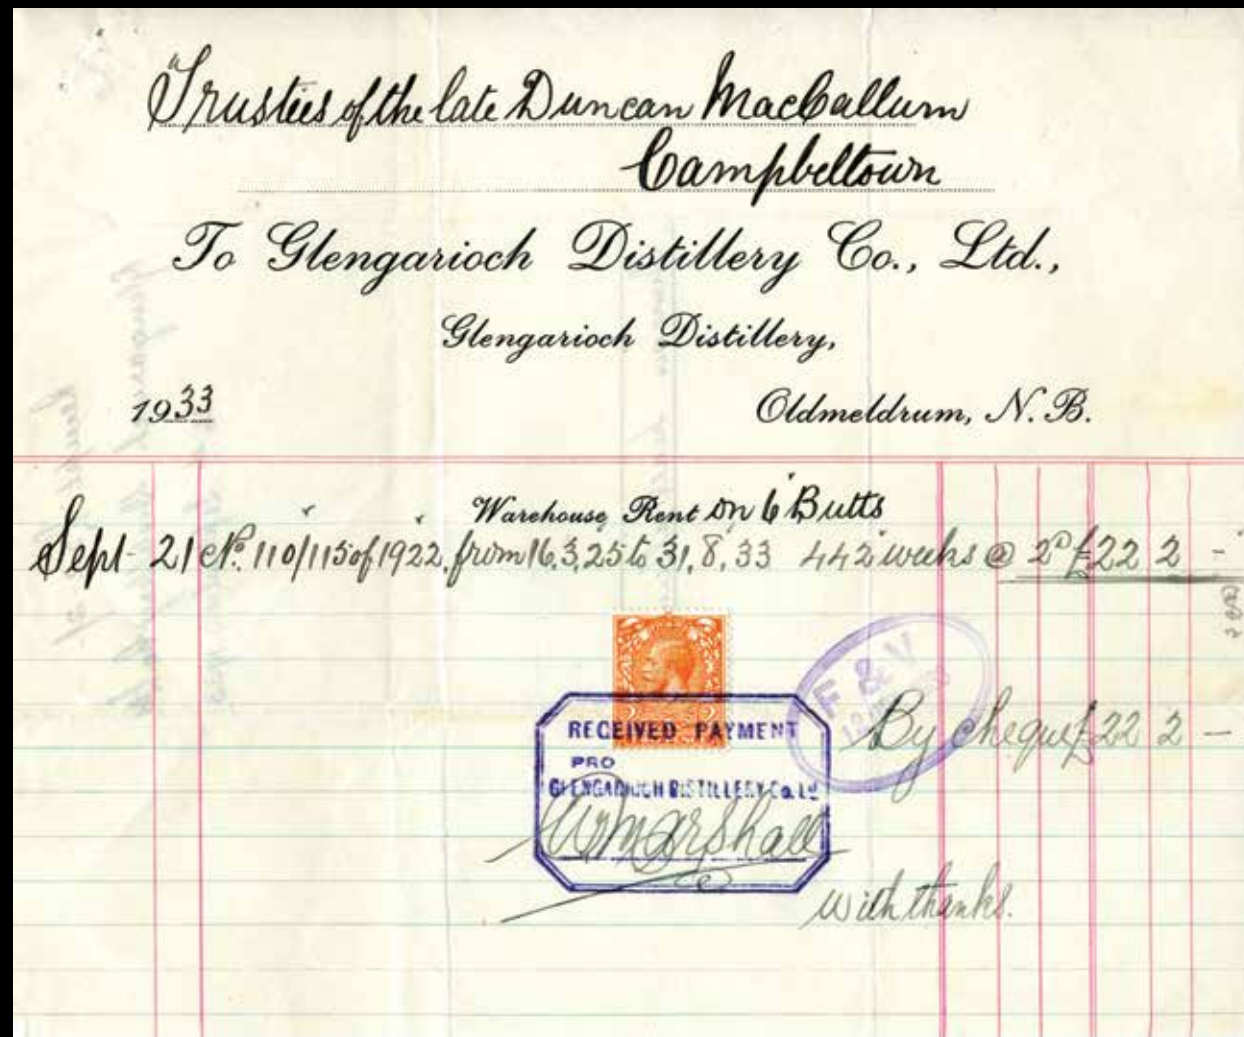 Trustees of the late Duncan MacCallum
Campbeltown
To Glengarioch Distillery Co., Ltd.,
Glengarioch Distillery,
1933
Oldmeldrum, N. B.
Warehouse Rent on 6 Butts
Sept 21 No. 110/115 of 1922, from 16.3.25 to 31.8.33 442 weeks @ 2D £22 2 -
F & V
RECEIVED PAYMENT
By cheque £22 2 -
PRO
GLENGARIOCH DISTILLERY Co. Ld
Wm Marshall
with thanks.